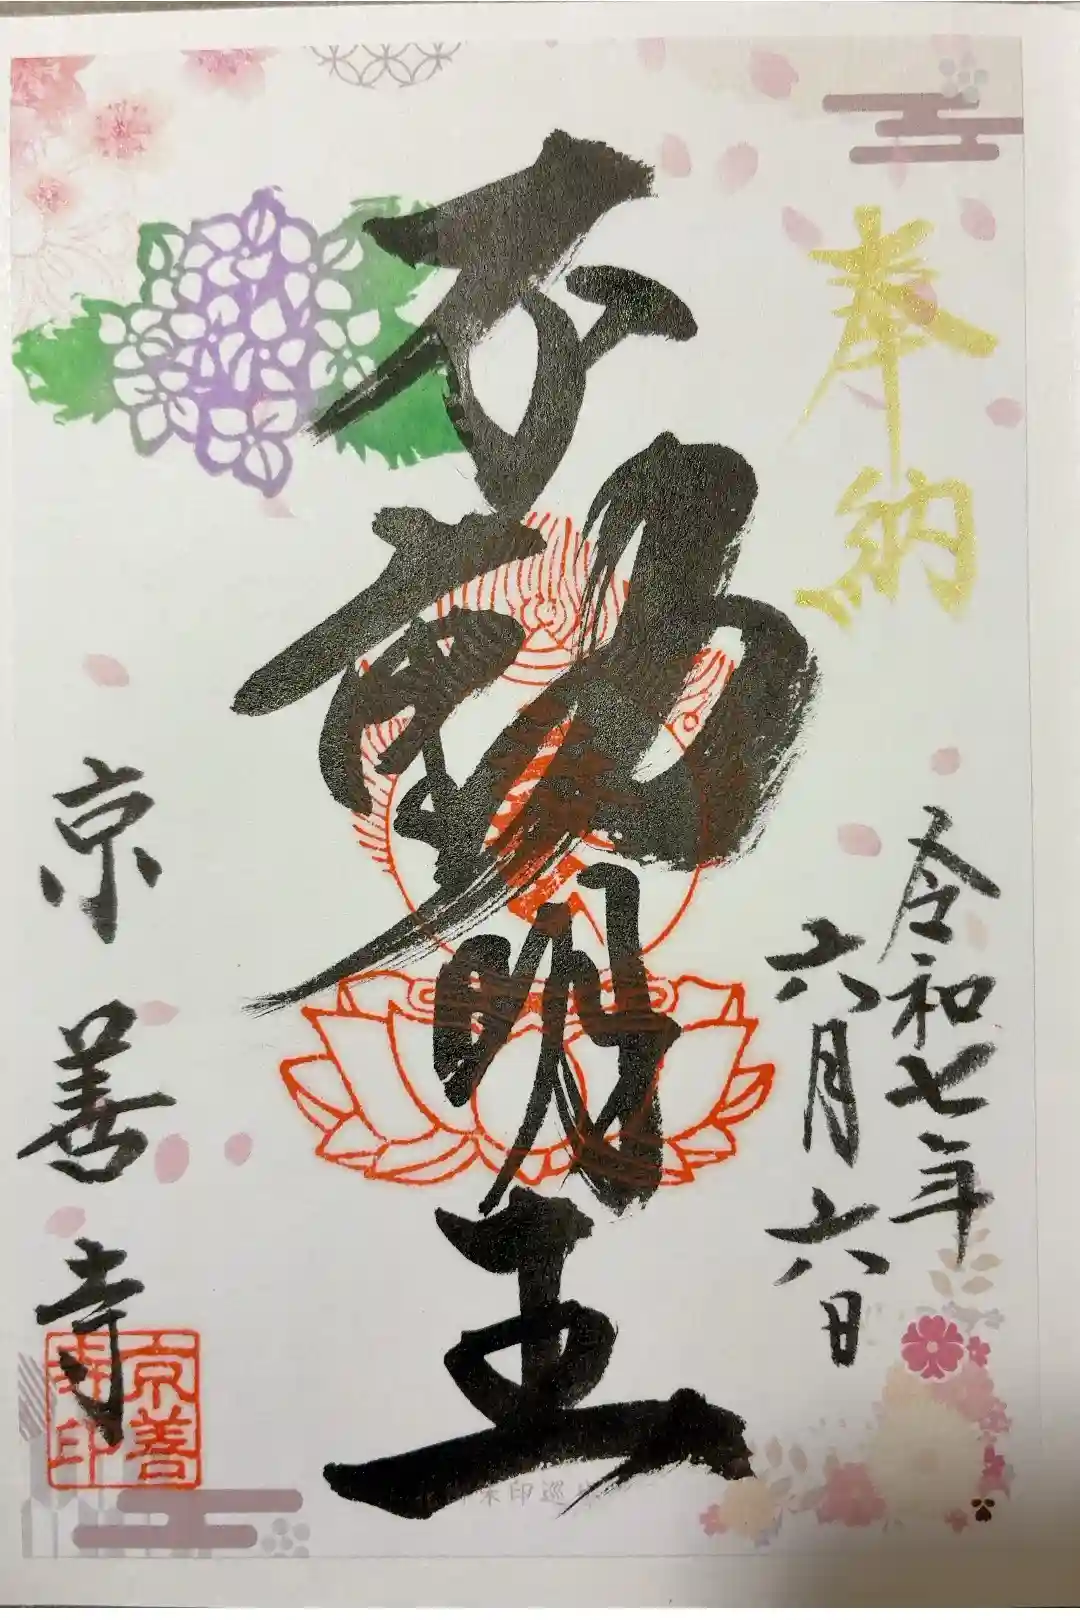 奉納
令和七年
六月六日
不動明王
京善寺
京善
寺印